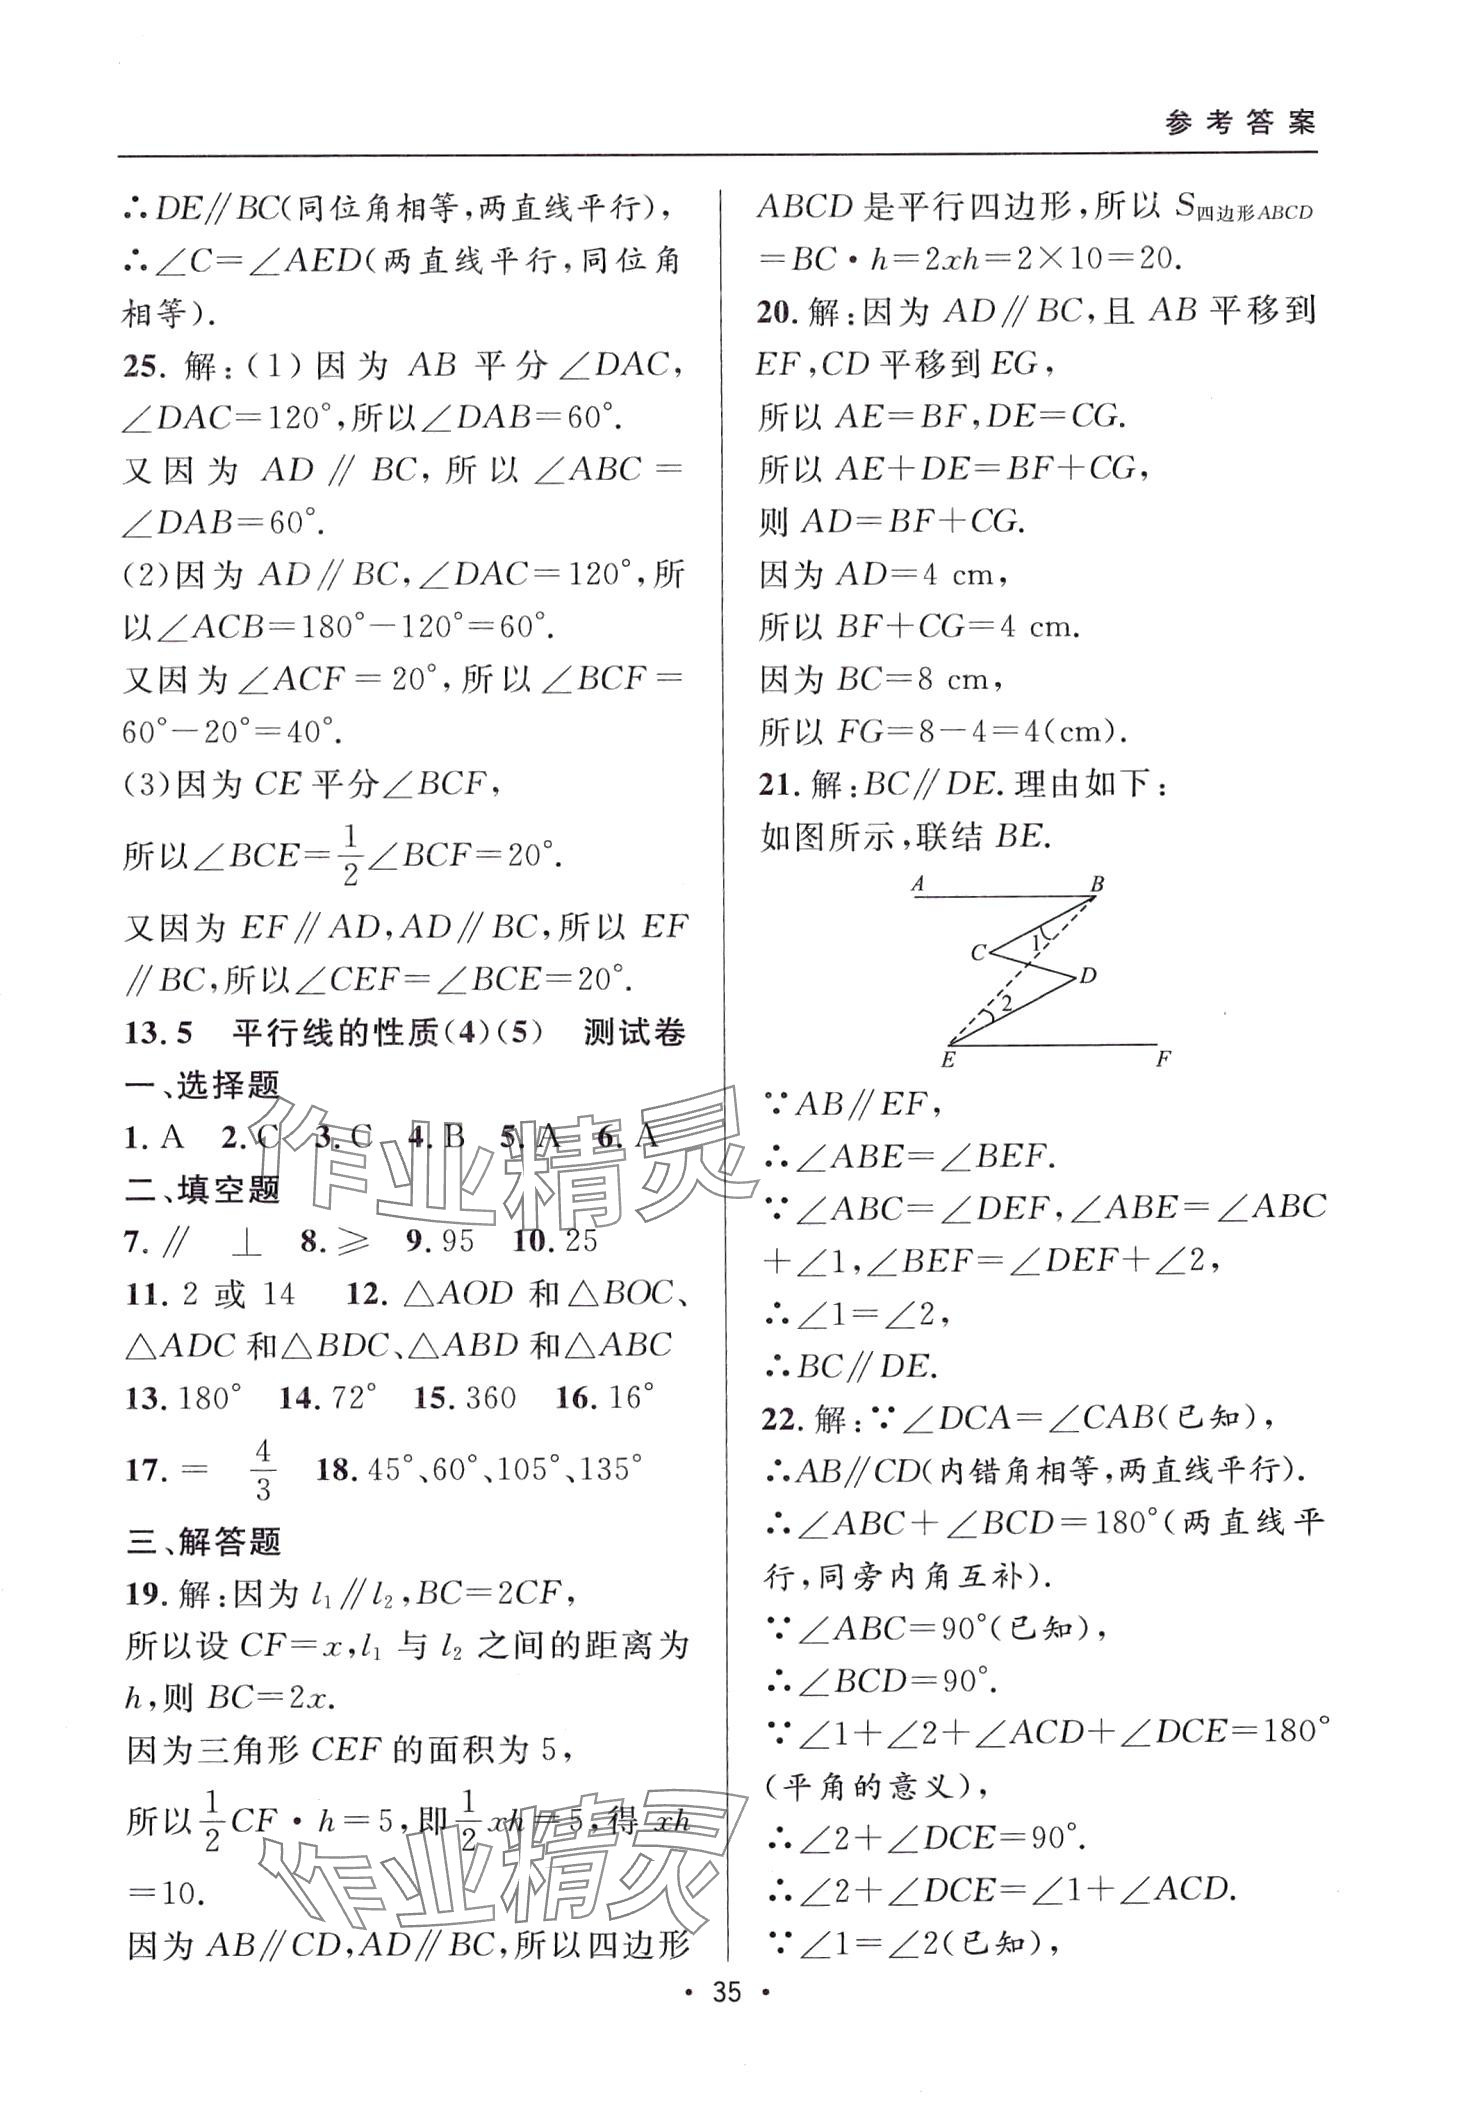 参考答案
∴DE∥BC(同位角相等,两直线平行),
∴∠C=∠AED(两直线平行,同位角
相等).
25. 解:(1)因为 AB 平分∠DAC,
∠DAC=120°,所以∠DAB=60°.
又因为 AD∥BC,所以∠ABC=
∠DAB=60°.
(2)因为 AD∥BC,∠DAC=120°,所
以∠ACB=180°-120°=60°.
又因为∠ACF=20°,所以∠BCF=
60°-20°=40°.
(3)因为 CE 平分∠BCF,
所以∠BCE=1/2∠BCF=20°.
又因为 EF∥AD,AD∥BC,所以 EF
∥BC,所以∠CEF=∠BCE=20°.
13.5 平行线的性质(4)(5) 测试卷
一、选择题
1. A 2. C 3. C 4. B 5. A 6. A
二、填空题
7. ∥ ⊥ 8. ≥ 9. 95 10. 25
11. 2 或 14 12. △AOD 和△BOC、
△ADC 和△BDC、△ABD 和△ABC
13. 180° 14. 72° 15. 360 16. 16°
17. = 4/3 18. 45°、60°、105°、135°
三、解答题
19. 解:因为 l₁∥l₂,BC=2CF,
所以设 CF=x,l₁ 与 l₂ 之间的距离为
h,则 BC=2x.
因为三角形 CEF 的面积为 5,
所以1/2CF·h=5,即1/2xh=5,得 xh
=10.
因为 AB∥CD,AD∥BC,所以四边形
ABCD 是平行四边形,所以 S四边形ABCD
=BC·h=2xh=2×10=20.
20. 解:因为 AD∥BC,且 AB 平移到
EF,CD 平移到 EG,
所以 AE=BF,DE=CG.
所以 AE+DE=BF+CG,
则 AD=BF+CG.
因为 AD=4 cm,
所以 BF+CG=4 cm.
因为 BC=8 cm,
所以 FG=8-4=4(cm).
21. 解:BC∥DE.理由如下:
如图所示,联结 BE.
A B
1
C
D
2
E F
∵AB∥EF,
∴∠ABE=∠BEF.
∵∠ABC=∠DEF,∠ABE=∠ABC
+∠1,∠BEF=∠DEF+∠2,
∴∠1=∠2,
∴BC∥DE.
22. 解:∵∠DCA=∠CAB(已知),
∴AB∥CD(内错角相等,两直线平行).
∴∠ABC+∠BCD=180°(两直线平
行,同旁内角互补).
∵∠ABC=90°(已知),
∴∠BCD=90°.
∵∠1+∠2+∠ACD+∠DCE=180°
(平角的意义),
∴∠2+∠DCE=90°.
∴∠2+∠DCE=∠1+∠ACD.
∵∠1=∠2(已知),
作业精灵
作业精灵
·35·